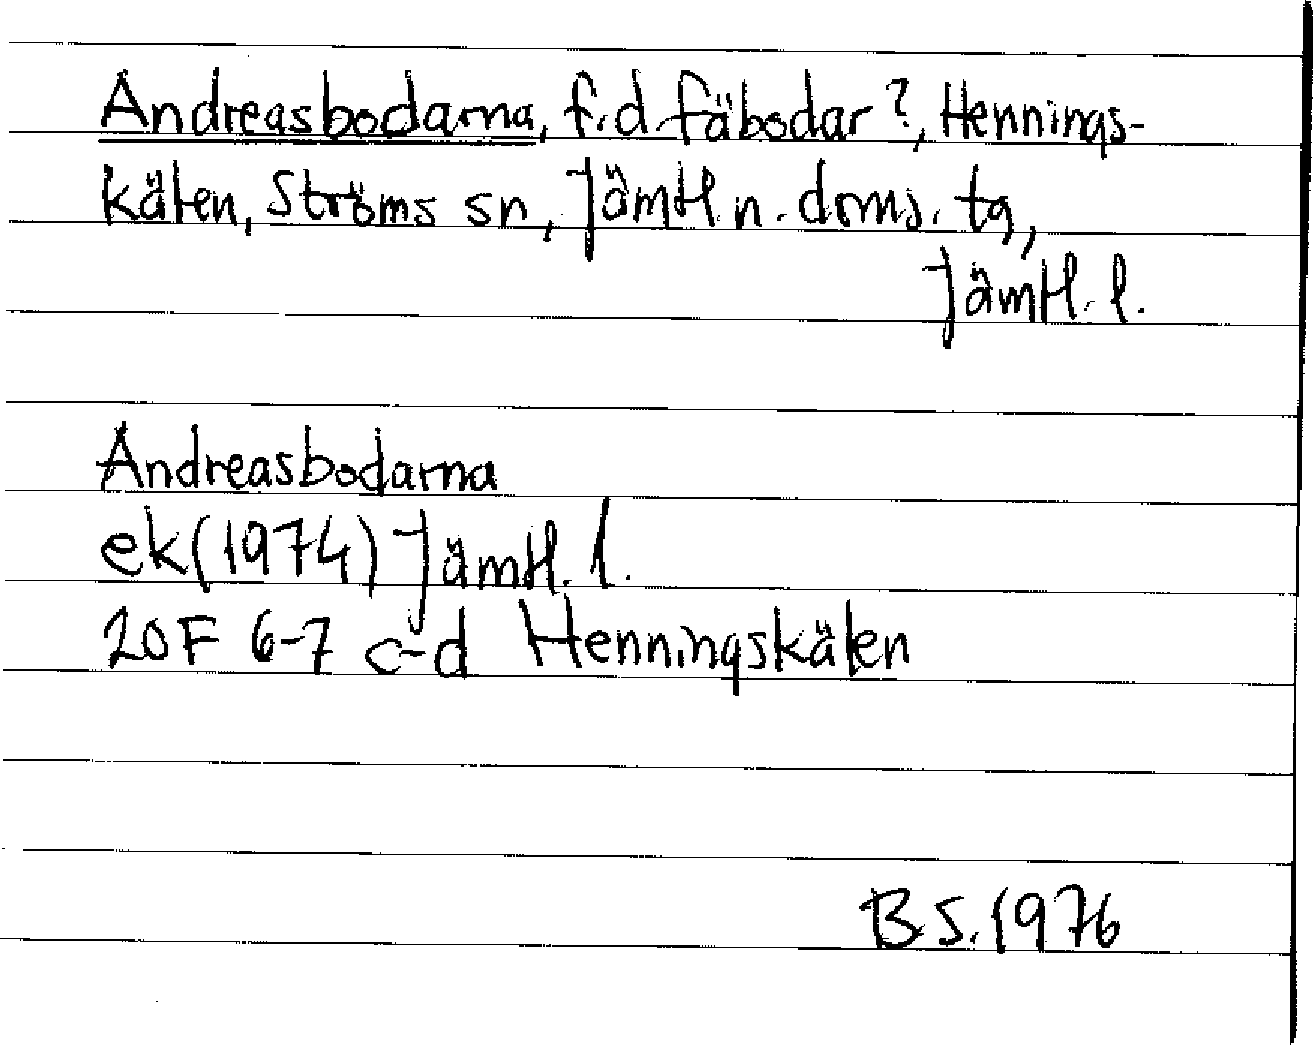 Andreasbodarna, f.d. fäbodar?, Hennings-
kälen, Ströms sn, Jämtl. n. doms. tg,
Jämtl. l.
Andreasbodarna
ek(1974) Jämtl. l.
20F 6-7 c-d Henningskälen
B S. 1976